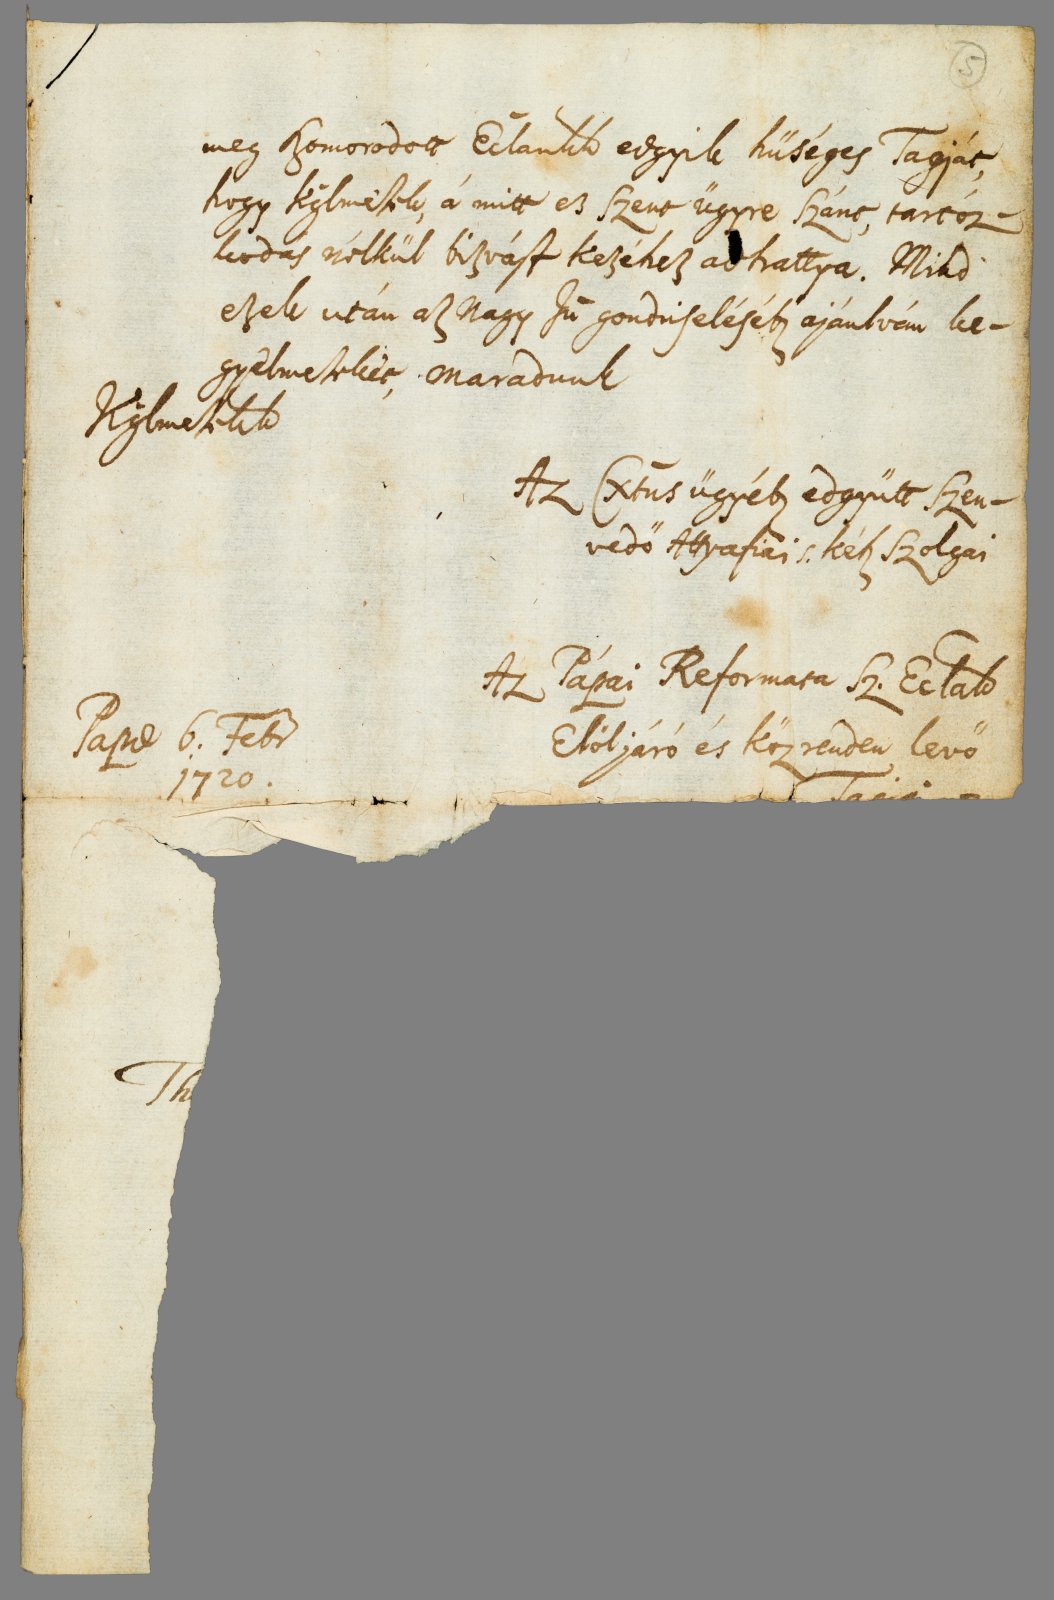 5
meg szomorodott Eclank edgyik hűséges Tagját,
hogy kglmetek, á mitt es szent ügyre szánt, tartóz-
kodas nélkül bizváſt kezéhez adhattya. Mind
ezek után az Nagy Jn̄ gondviselésébē ajánlván ke-
gyelmeteket, maradunk
Kglmetek
Az Xtūs ügyébē edgyütt szen-
vedő Attyafiai s. kéſz szolgai
Az Pápai Reformata Sz. Ecla
Elöljáró és köz renden levő
Tagjai
Papae 6. Febr
1720.
Th